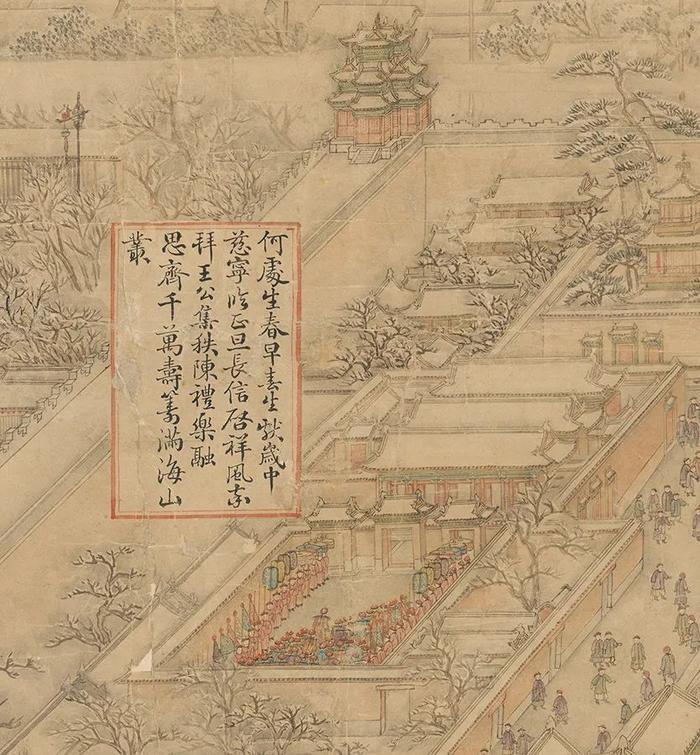 何處生春早春生献歲中
慈寧臨正旦長信啓祥風
拜王公集秩陳禮樂融
思齊千萬壽籌滿海山
叢